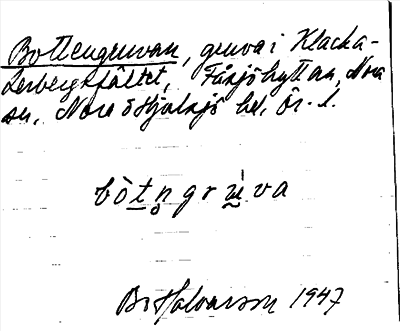 Bottengruvan, gruva i Klacka-
Lerbergsfältet, Fåsjöhyttan, Nora
sn, Nora o Hjulsjö hd, Ör. l.
bòt̲n̥grúva
Bo Halvarsson 1947